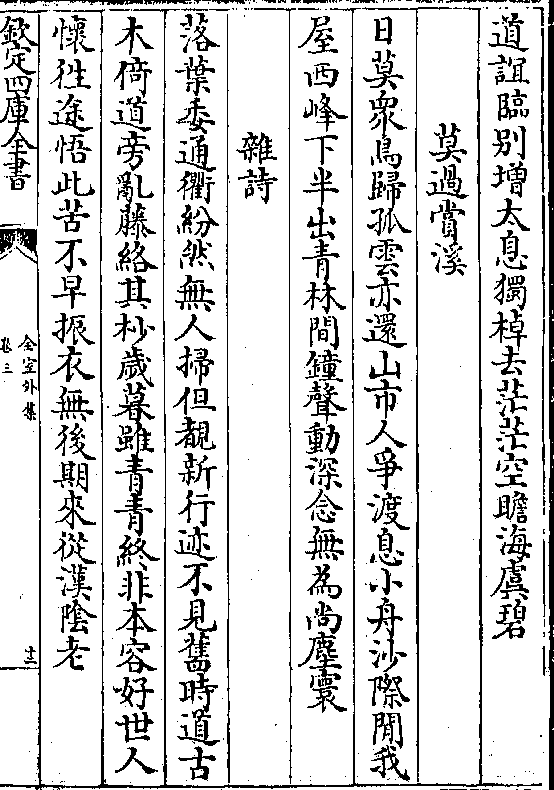 道誼臨别增太息獨棹去茫茫空瞻海虞碧
莫過賞溪
日莫衆鳥歸孤雲亦還山市人爭渡息小舟沙際閒我
屋西峰下半出青林間鐘聲動深念無為尚塵寰
雜詩
落葉委通衢紛然無人掃但覩新行迹不見舊時道古
木倚道旁亂藤絡其杪歲暮雖青青終非本容好世人
懷徃途悟此苦不早振衣無後期來從漢陰老
欽定四庫全書
全室外集
卷三
十三